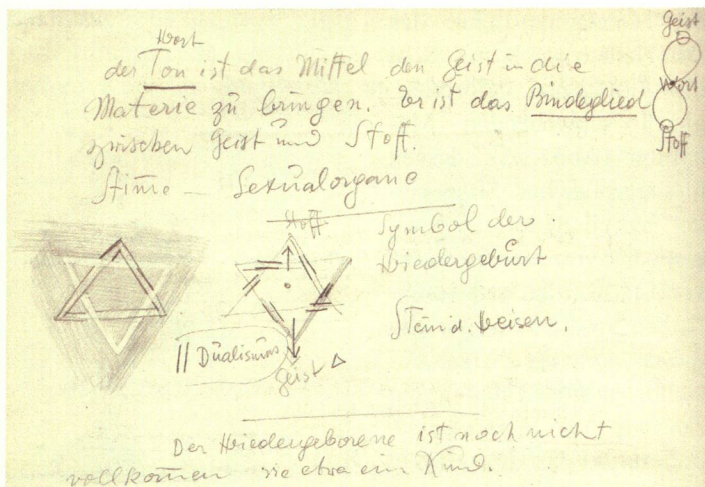 Wort
der Ton ist das Mittel den Geist in die
Materie zu bringen. Er ist das Bindeglied
zwischen Geist und Stoff.
Stim̅e – Sexualorgane
Geist
Wort
Stoff
Stoff
Symbol der
Wiedergeburt
Stein d. Weisen.
|| Dualismus
Geist
Der Wiedergeborene ist noch nicht
vollkom̅en wie etwa ein Kind.